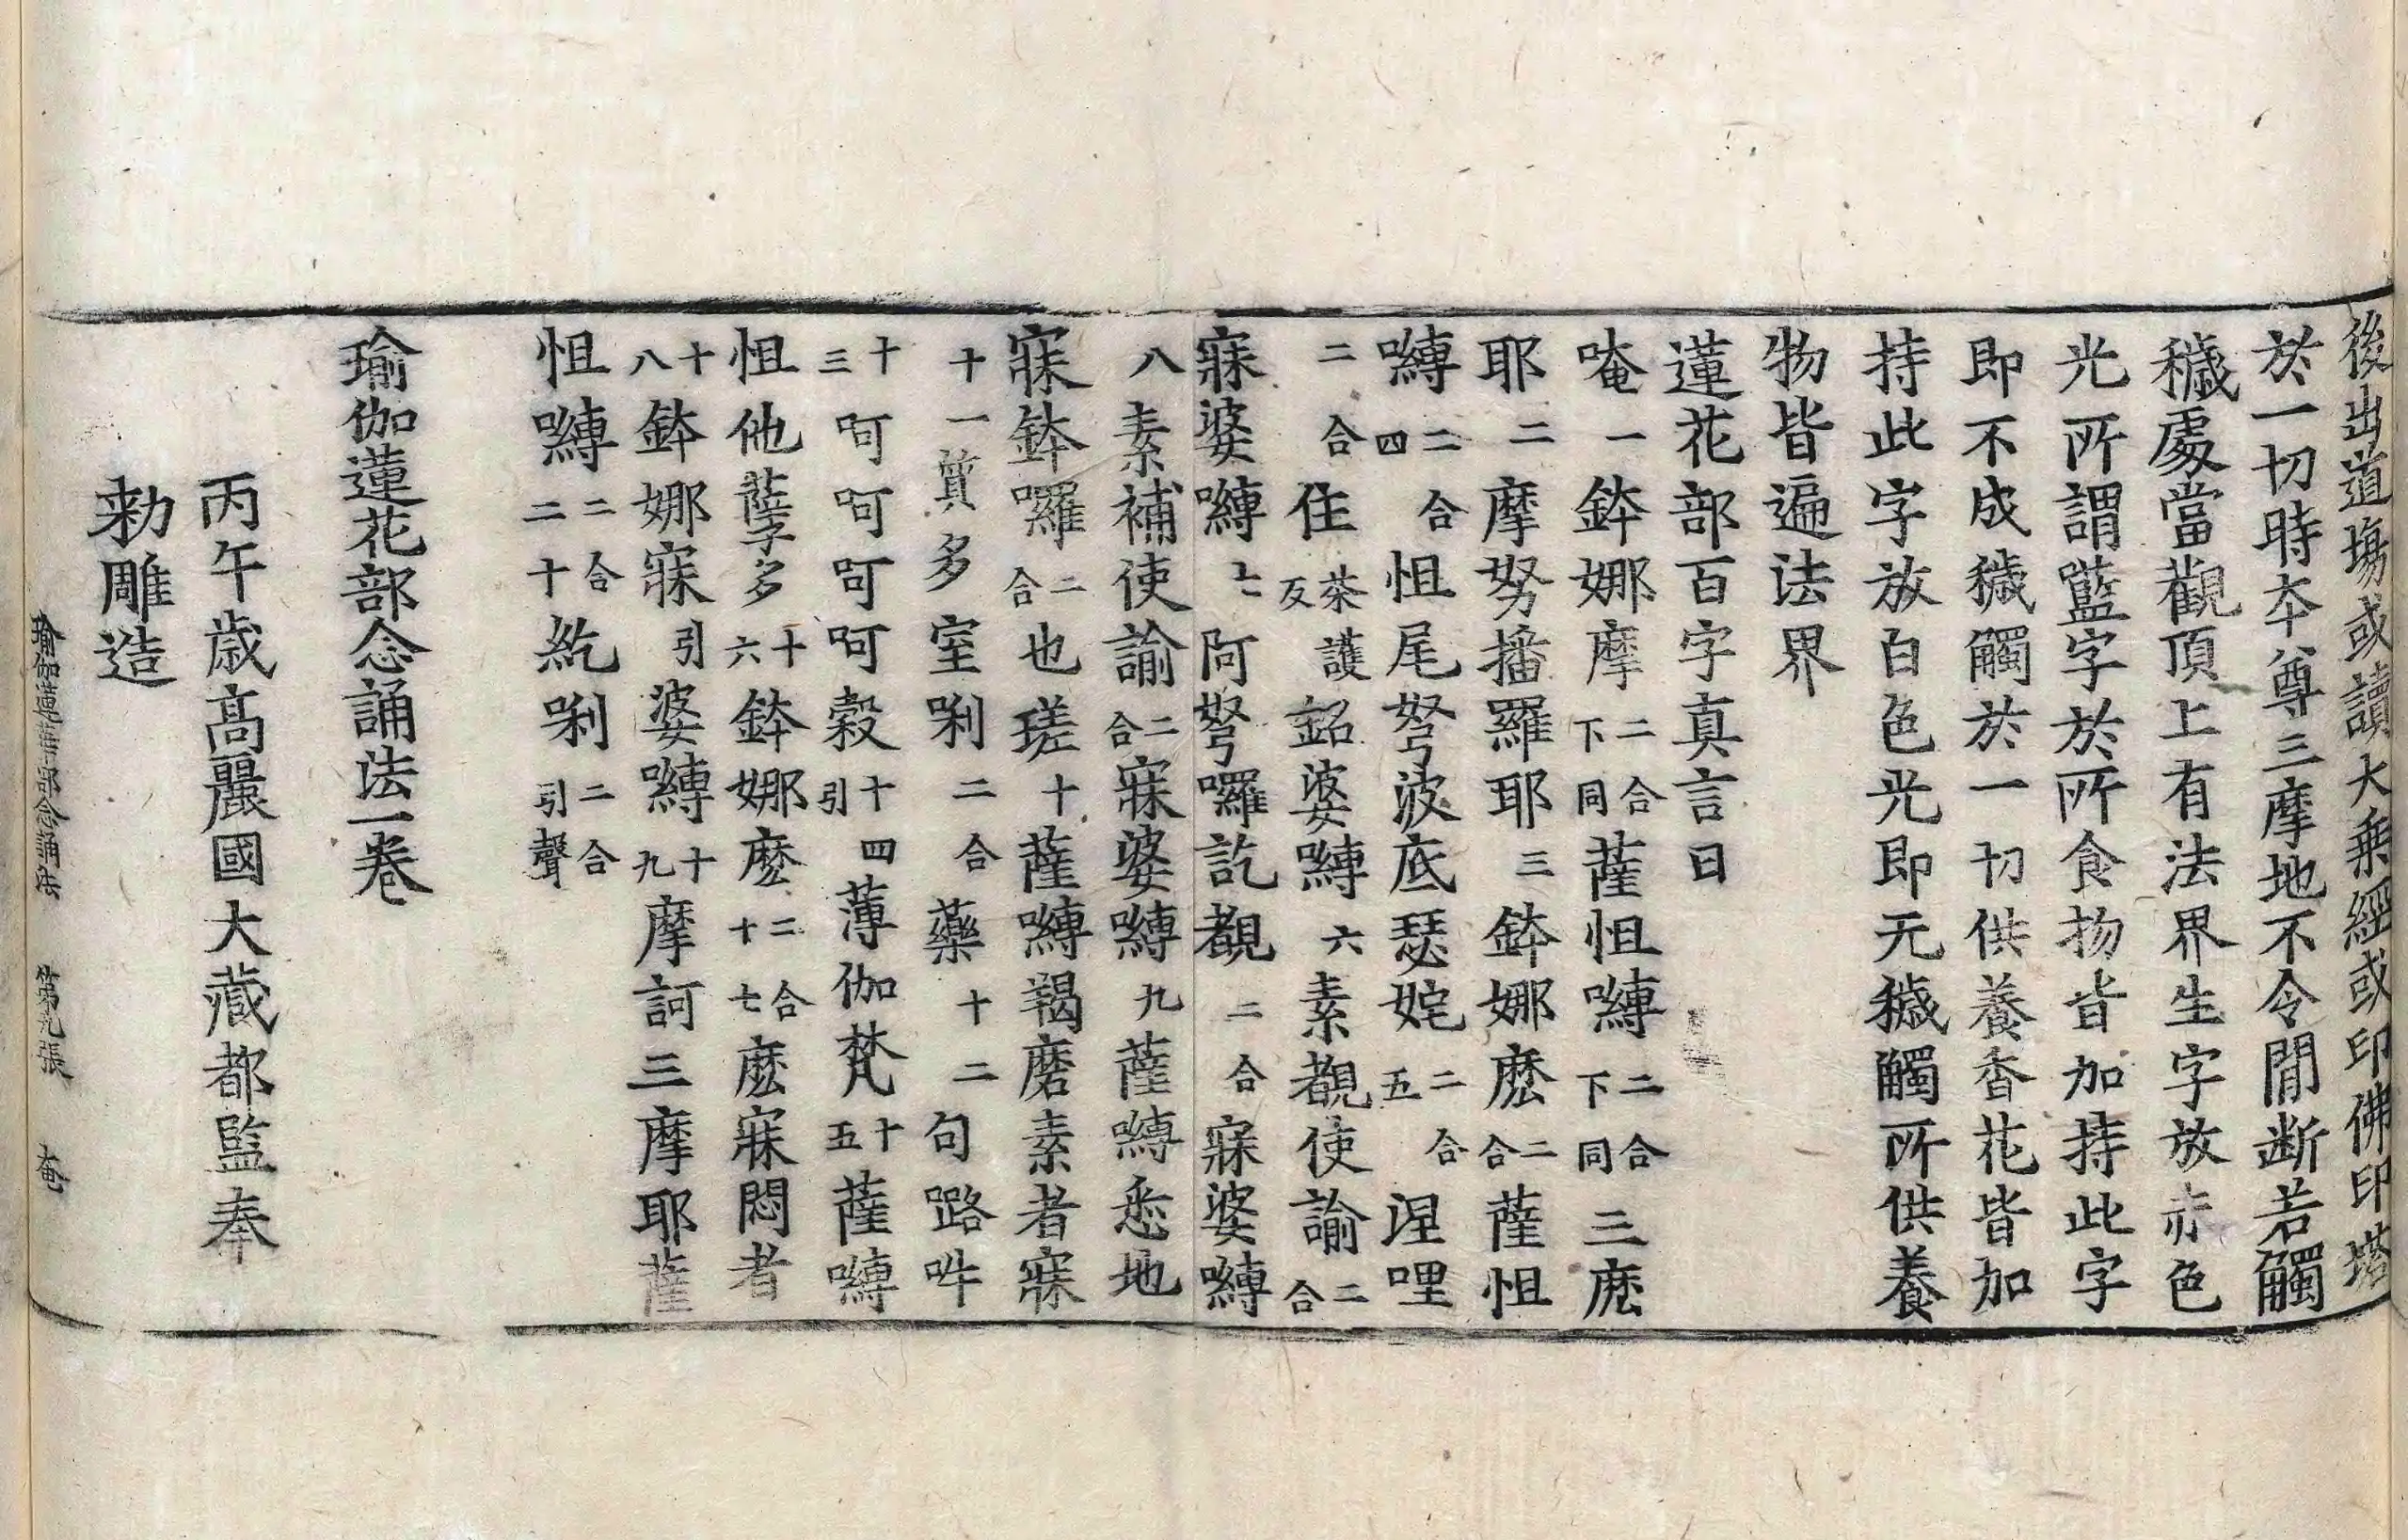 後出道場或讀大乗經或印佛印塔
於一切時夲尊三摩地不令閒断若觸
穢處當觀頂上有法界生字放赤色
光所謂㘕字於所食物皆加持此字
即不成穢觸於一切供養香花皆加
持此字放白色光即无穢觸所供養
物皆遍法界
蓮花部百字真言曰
唵一鉢娜摩二合下同薩怛嚩二合下同三麽
耶二摩努播羅耶三鉢娜麽二合薩怛
嚩二合四怛尾弩波底瑟姹二合五涅哩
二合住茶護反銘婆嚩六素覩使諭二合
寐婆嚩七阿弩囉訖覩二合寐婆嚩
八素補使諭二合寐婆嚩九薩嚩悉地
寐鉢囉二合也瑳十薩嚩羯磨素者寐
十一質多室唎二合藥十二句路吽
十三呵呵呵呵糓引十四薄伽梵十五薩嚩
怛他蘖多十六鉢娜麽二合十七麽寐悶者
十八鉢娜寐引婆嚩十九摩訶三摩耶薩
怛嚩二合二十紇唎二合引聲
瑜伽蓮花部念誦法一卷
丙午歳髙麗國大藏都監奉
勅雕造
瑜伽蓮華部念誦法 第九張 奄